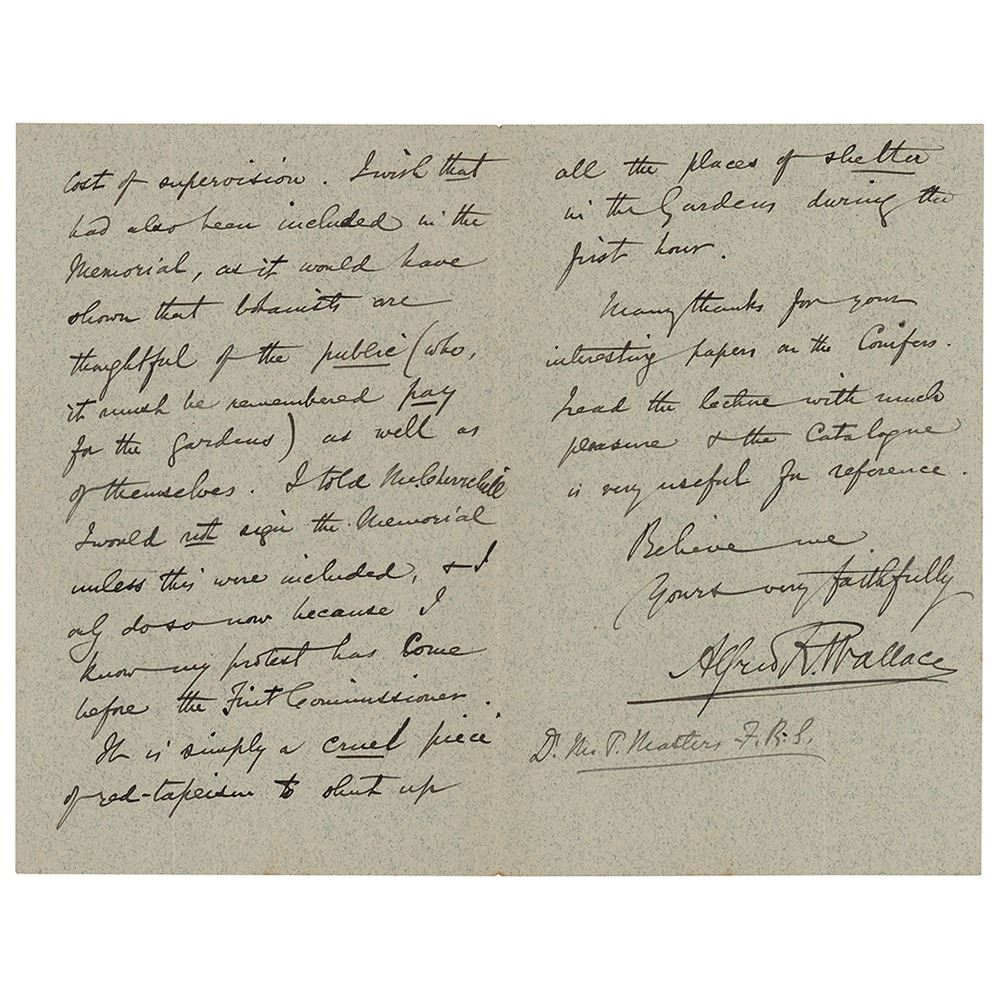 cost of supervision. I wish that
had also been included in the
Memorial, as it would have
shown that botanists are
thoughtful of the public (who,
it must be remembered pay
for the gardens) as well as
of themselves. I told Mr. Churchill
I would not sign the Memorial
unless this were included, & I
only do so now because I
know my protest has come
before the First Commissioner.
It is simply a cruel piece
of red-tapeism to shut up
all the places of shelter
in the Gardens during the
first hour.
Many thanks for your
interesting papers on the Conifers.
I read the lecture with much
pleasure & the Catalogue
is very useful for reference.
Believe me
Yours very faithfully
Alfred R. Wallace
Dr. M. T. Masters F.R.S.